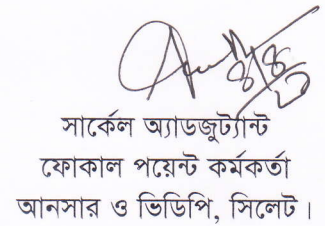 সার্কেল অ্যাডজুট্যান্ট
ফোকাল পয়েন্ট কর্মকর্তা
আনসার ও ভিডিপি, সিলেট।